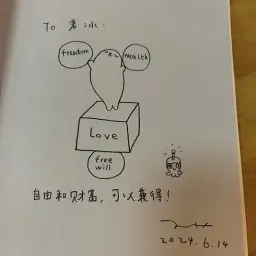 To 素冰:
freedom
wealth
Love
free
will
自由和财富,可以兼得!
2024.6.14